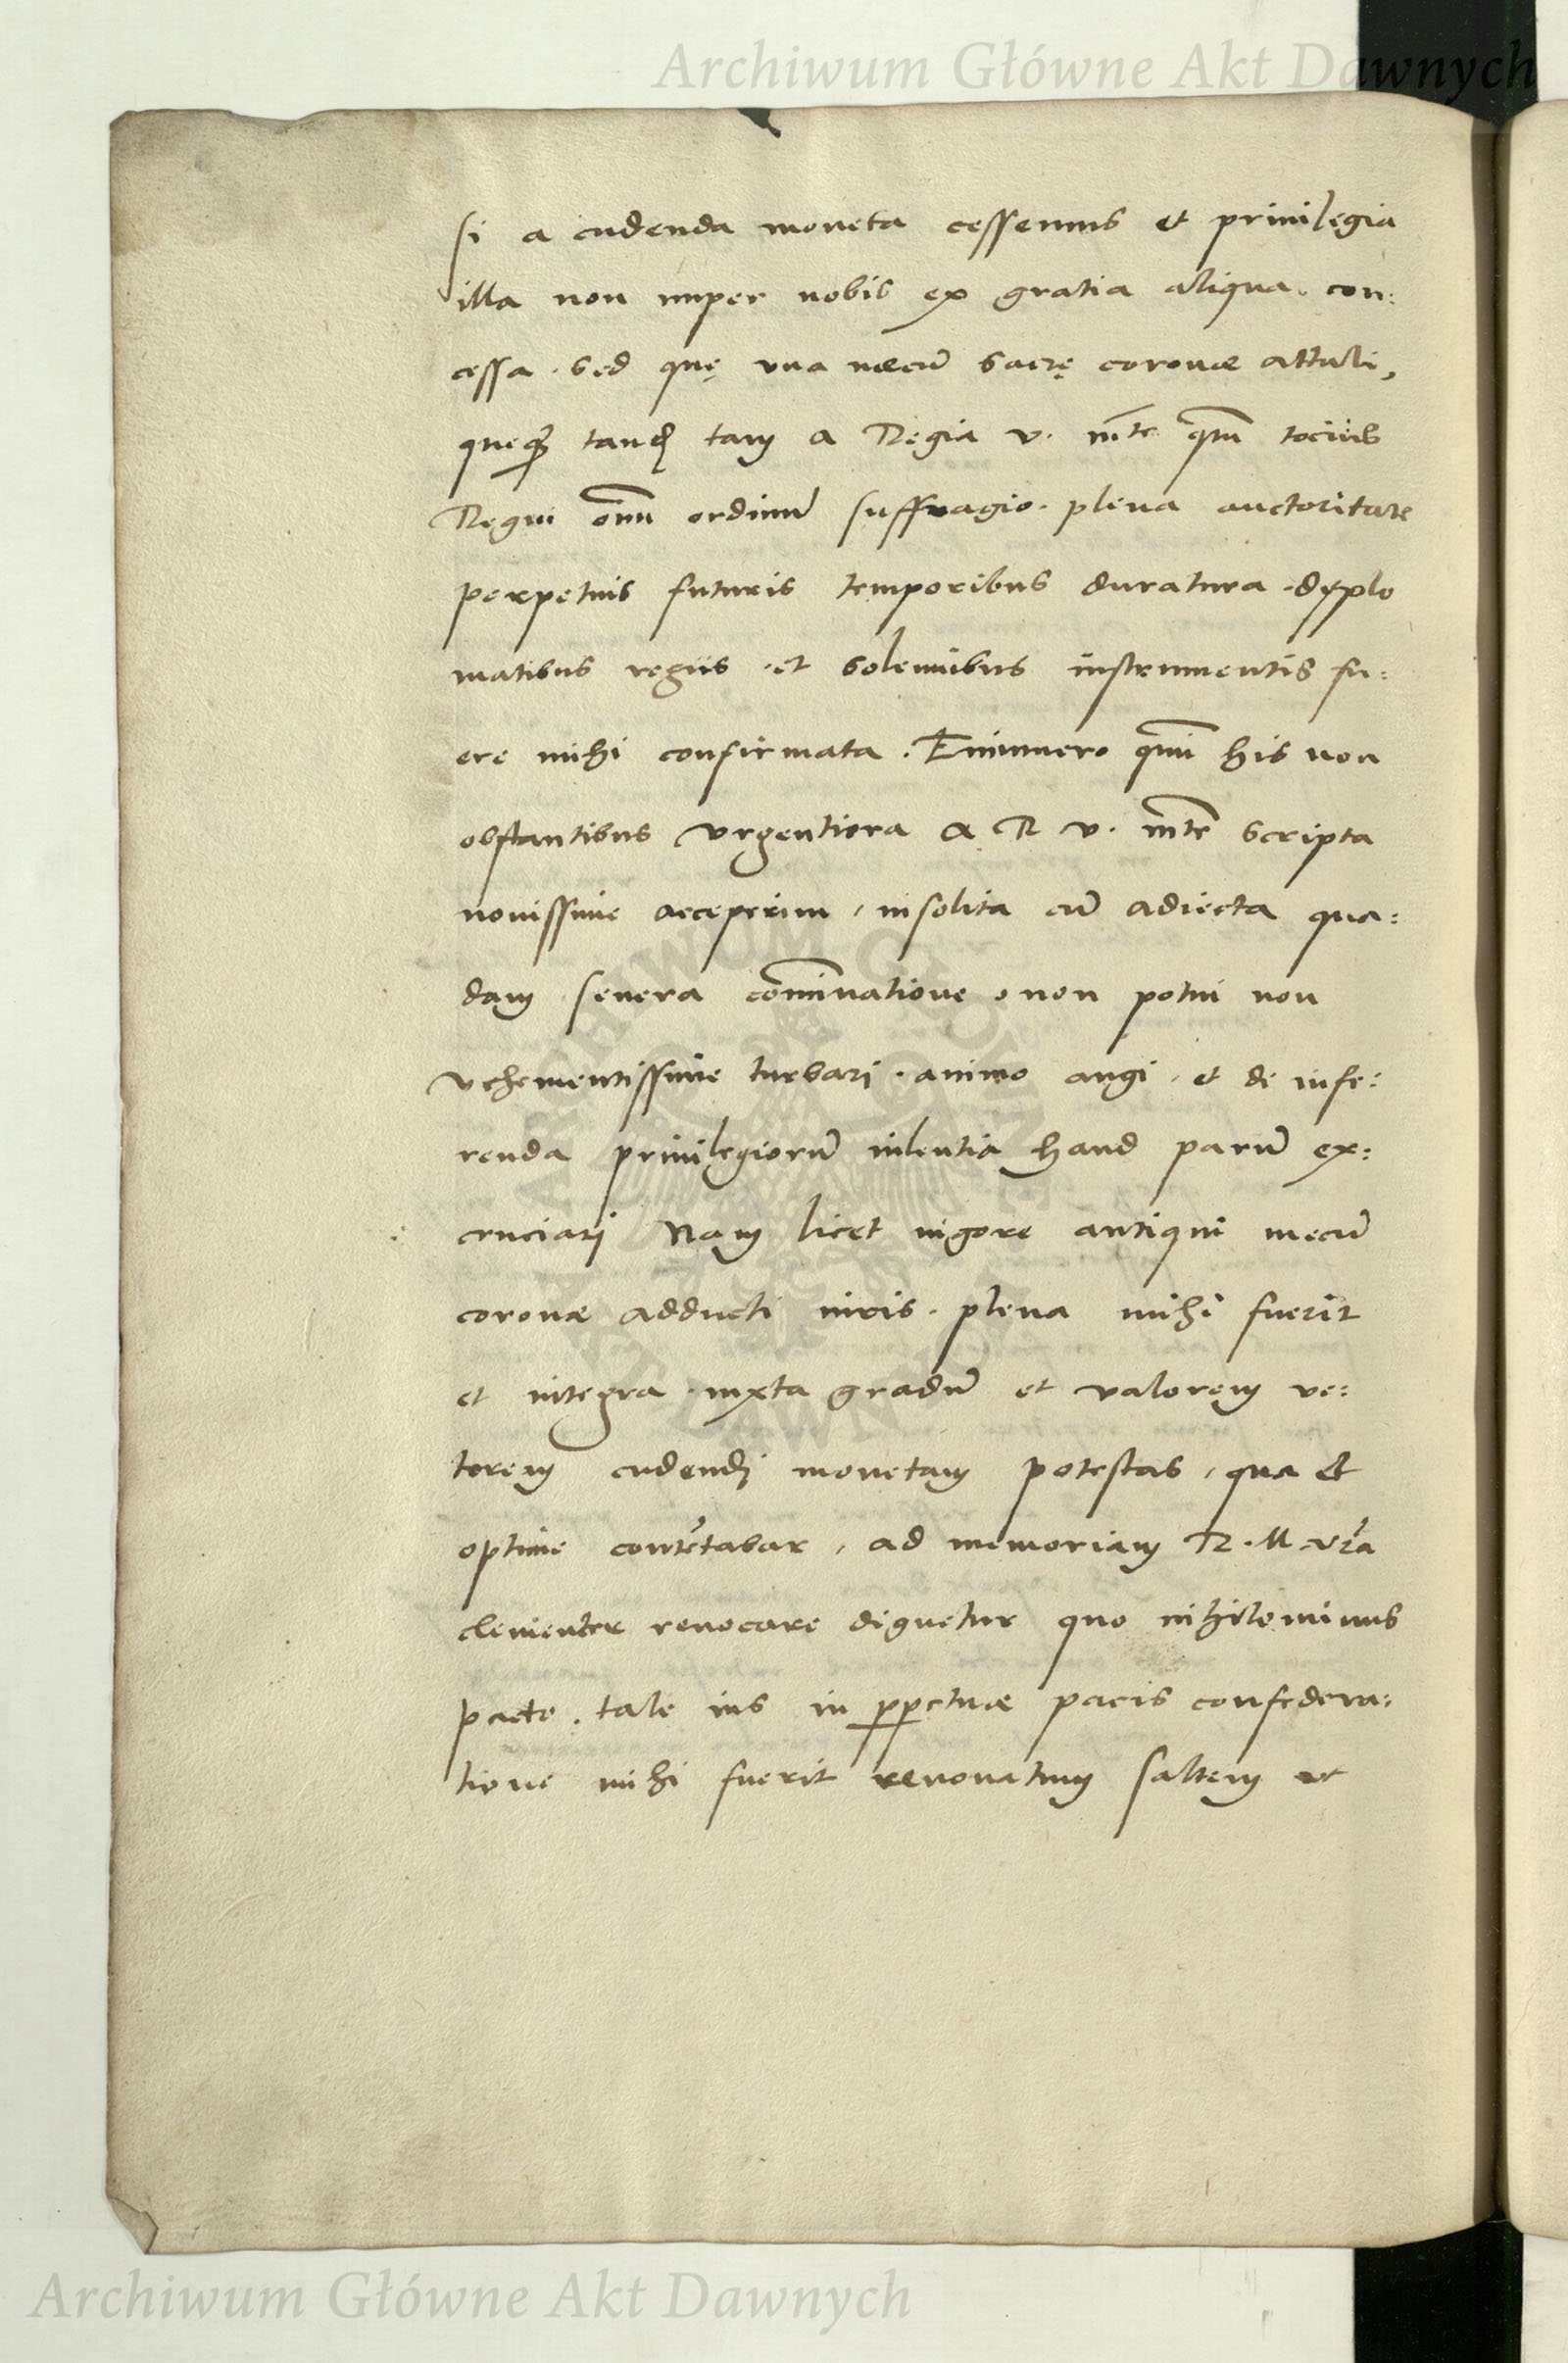 Archiwum Główne Akt Dawnych
si a cudenda moneta cessemus et privilegia
illa non nuper nobis ex gratia aliqua con:
cessa. sed quę una mecū sacrę coronæ attuli,
tam a Regia v. mte qm̄ tocius
Regni om̄ ordinū suffragio. plena auctoritate
perpetuis futuris temporibus duratura. dyplo
matibus regiis et solemnibus instrumentis fu:
ere mihi confirmata. Enimuero qm̄ his non
obstantibus urgentiora a R v. mte scripta
nouissime acceperim, insolita cū adiecta qua:
dam seuera com̄inatione, non potui non
vehementissime turbari. animo angi, et de infe:
renda priuilegiorū iniolentia haud parū ex:
cruciari Nam licet uigore antiqui mecū
coronæ adducti iuris. plena mihi fuerit
et integra iuxta gradū et valorem ve:
terem cudendi monetam potestas, qua et
optime contētabar, ad memoriam R. M. vra
clementer reuocare dignetur quo nihilominus
pacto. tale ius in ppetuæ pacis confedera:
tione mihi fuerit renouatum saltem ut
ARCHIWUM GŁÓWNE
AKT DAWNYCH
Archiwum Główne Akt Dawnych